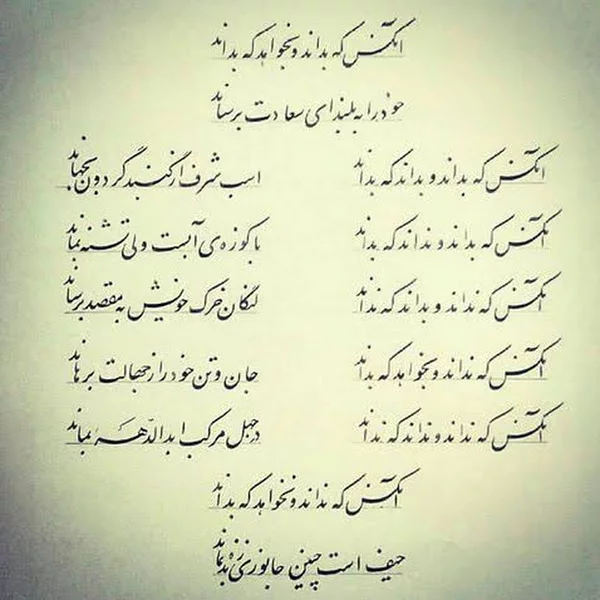 آنکس که بداند و بخواهد که بداند
خود را به بلندای سعادت برساند
آنکس که بداند و بداند که بداند اسب شرف از گنبد گردون بجهاند
آنکس که بداند و نداند که بداند با کوزه ی آبست ولی تشنه بماند
آنکس که نداند و بداند که نداند لنگان خرک خویش به مقصد برساند
آنکس که نداند و بخواهد که بداند جان و تن خود را ز جهالت برهاند
آنکس که نداند و نداند که نداند در جهل مرکب ابدالدّهر بماند
آنکس که نداند و نخواهد که بداند
حیف است چنین جانوری زنده بماند